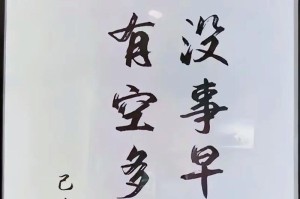 没事早
有空多
己